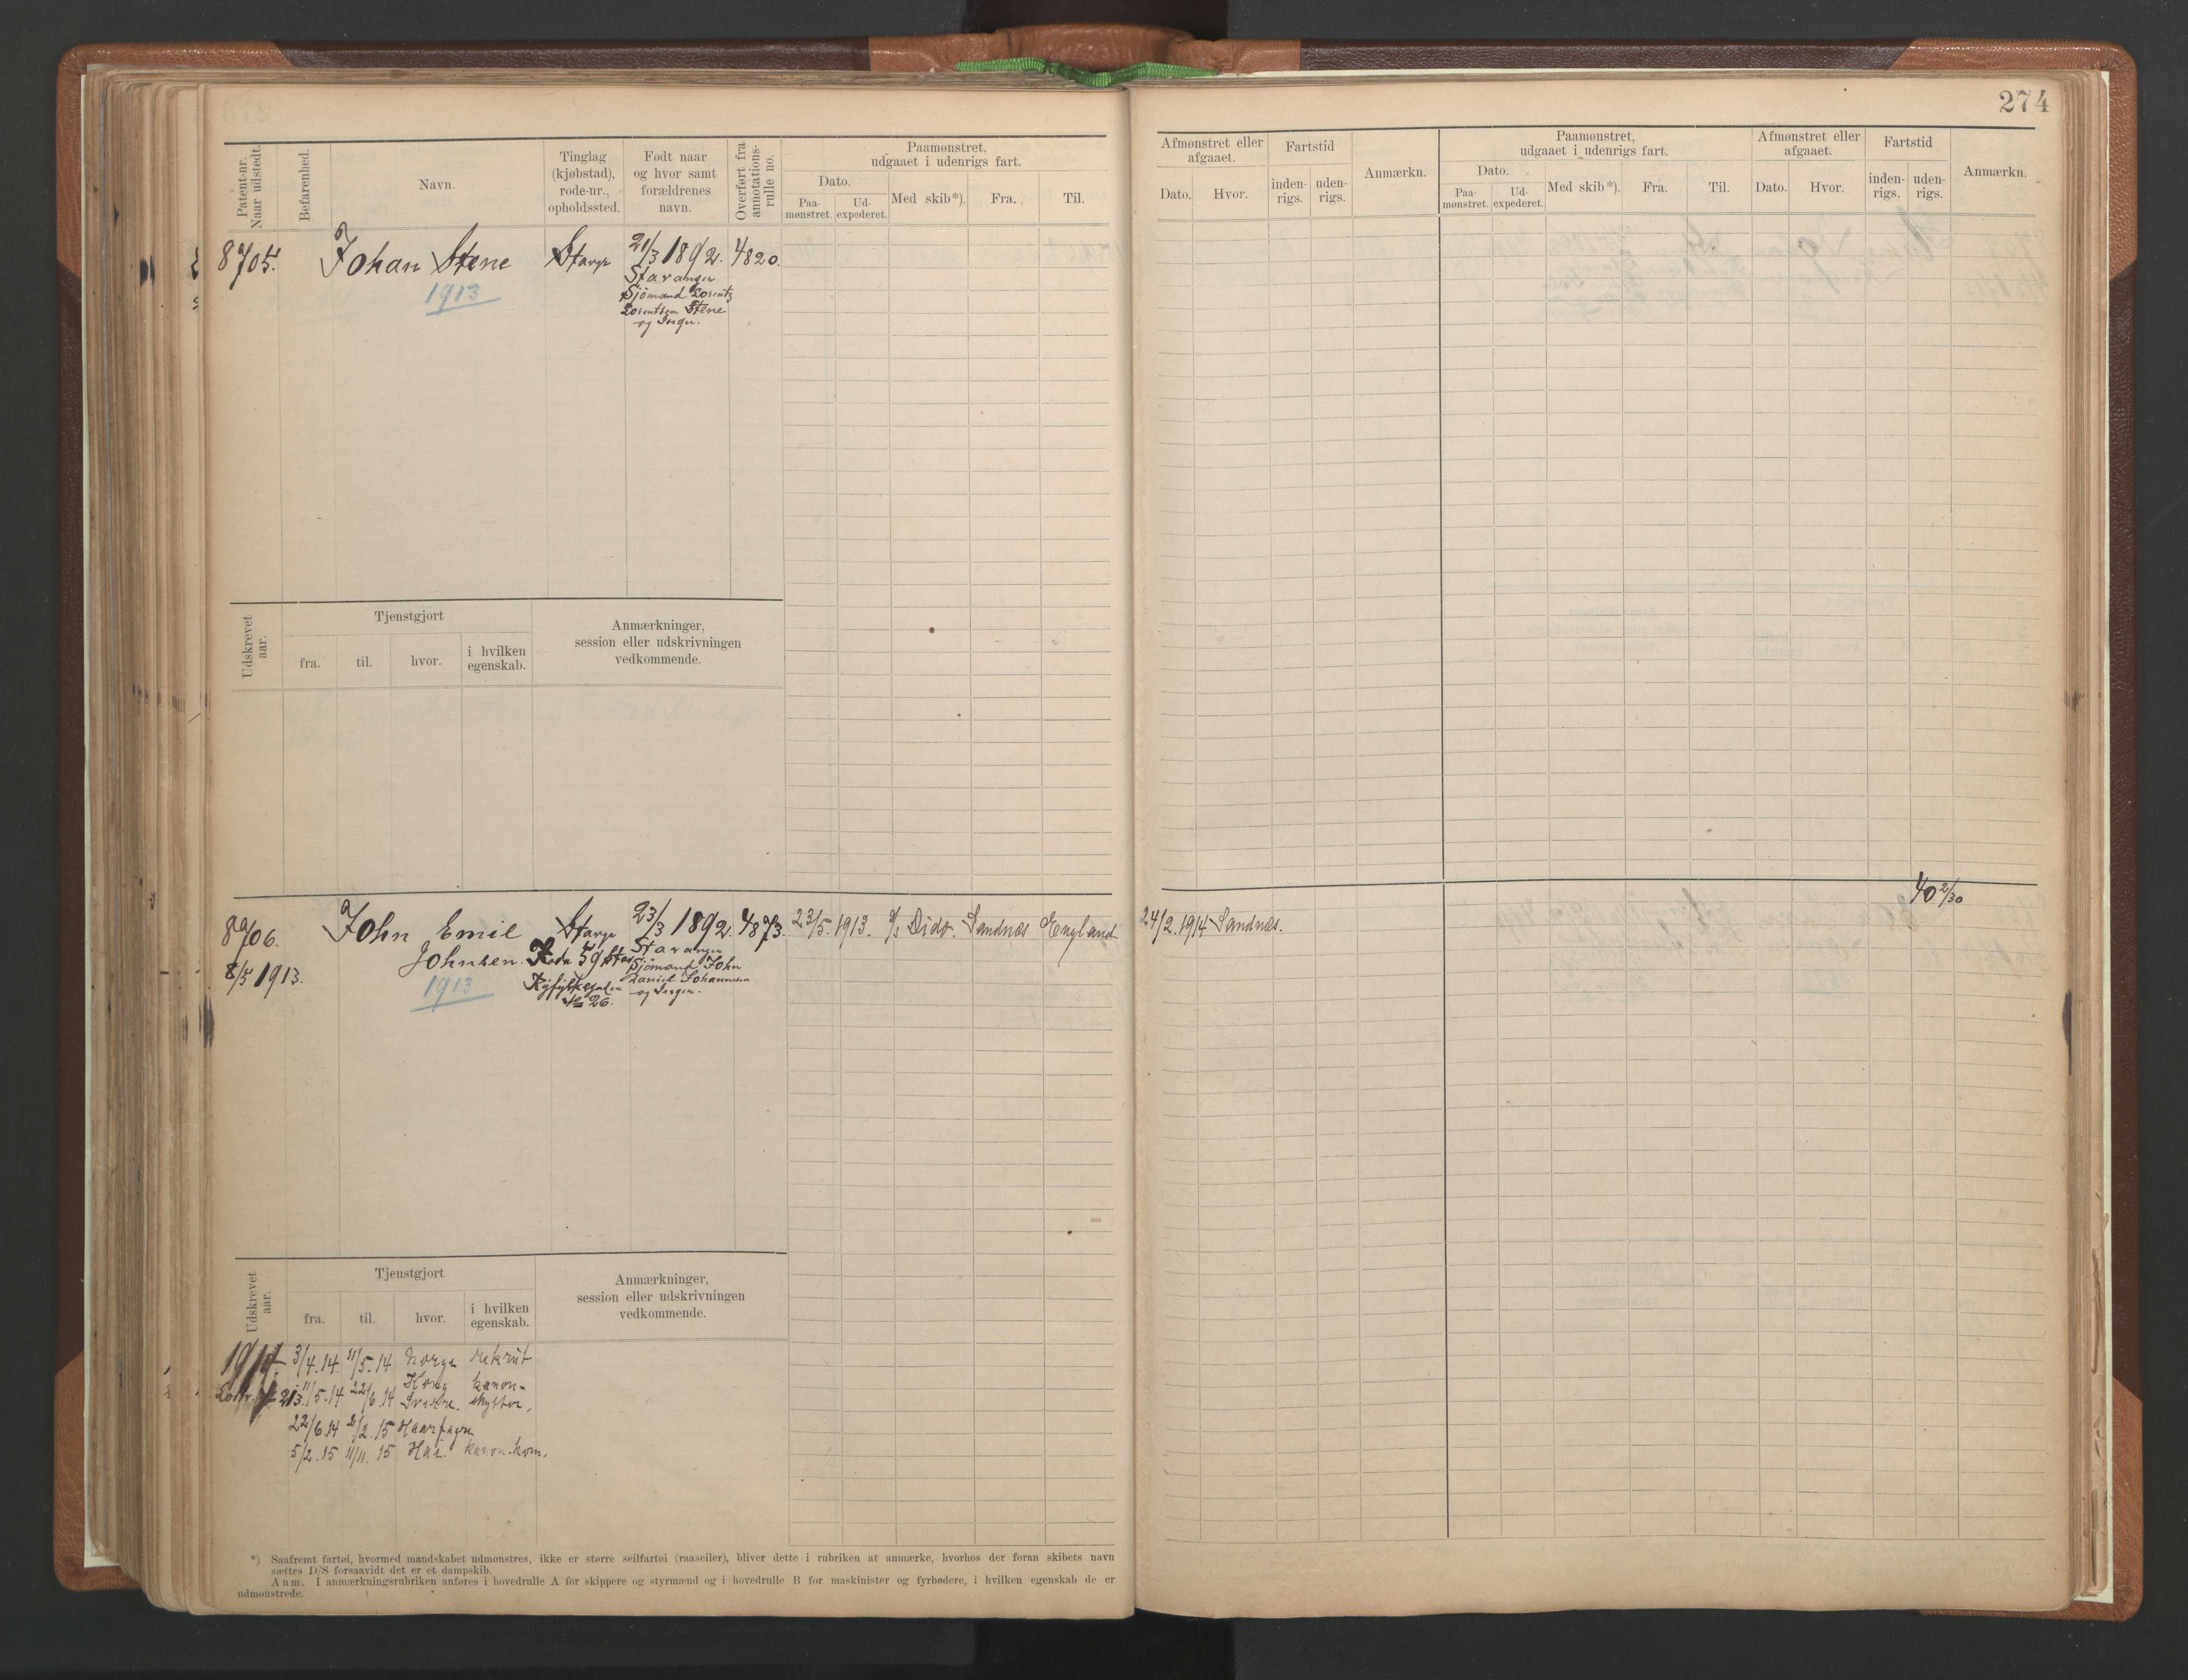 274
Patent-nr. Naar udstedt.
Befarenhed.
Navn.
Tinglag (kjøbstad), rode-nr., opholdssted.
Født naar og hvor samt forældrenes navn.
Overført fra annotations-rulle no.
Paamønstret, udgaaet i udenrigs fart.
Dato.
Paa-mønstret.
Ud-expederet.
Med skib*).
Fra.
Til.
Afmønstret eller afgaaet.
Dato.
Hvor.
Fartstid
inden-rigs.
uden-rigs.
Anmærkn.
Paamønstret, udgaaet i udenrigs fart.
Dato.
Paa-mønstret.
Ud-expederet.
Med skib*).
Fra.
Til.
Afmønstret eller afgaaet.
Dato.
Hvor.
Fartstid
inden-rigs.
uden-rigs.
Anmærkn.
8705. Johan Stene Stavgr 21/3 1892. 4820.
1913
Stavanger
Sjömand Lorentz
Lorentsen Stene
og Inger.
Udskrevet aar.
Tjenstgjort
fra.
til.
hvor.
i hvilken egenskab.
Anmærkninger,
session eller udskrivningen
vedkommende.
40 2/30
8706. John Emil Stavgr 23/3 1892. 4873. 23/5. 1913. Dido. Sandnæs England 24/2. 1914 Sandnæs.
8/5 1913. Johnsen. Rode 59
1913
Stavanger
Sjömand John
Daniel Johannesen
og Inger.
Ryfylkegaden
No 26.
Udskrevet aar.
Tjenstgjort
fra.
til.
hvor.
i hvilken egenskab.
Anmærkninger,
session eller udskrivningen
vedkommende.
1914 3/4.14. 11/5.14 Norge rekrut
213. 11/5.14 22/6.14 Kong Sverre. kanon-skytter.
22/6.14 2/2.15 Haarfagre
5/2.15 11/11.15 Hai. kanon.kom.
*) Saafremt fartøi, hvormed mandskabet udmønstres, ikke er større seilfartøi (raaseiler), bliver dette i rubriken at anmærke, hvorhos der foran skibets navn
sættes D/S forsaavidt det er et dampskib.
Anm. I anmærkningsrubriken anføres i hovedrulle A for skippere og styrmænd og i hovedrulle B for maskinister og fyrbødere, i hvilken egenskab de er
udmønstrede.